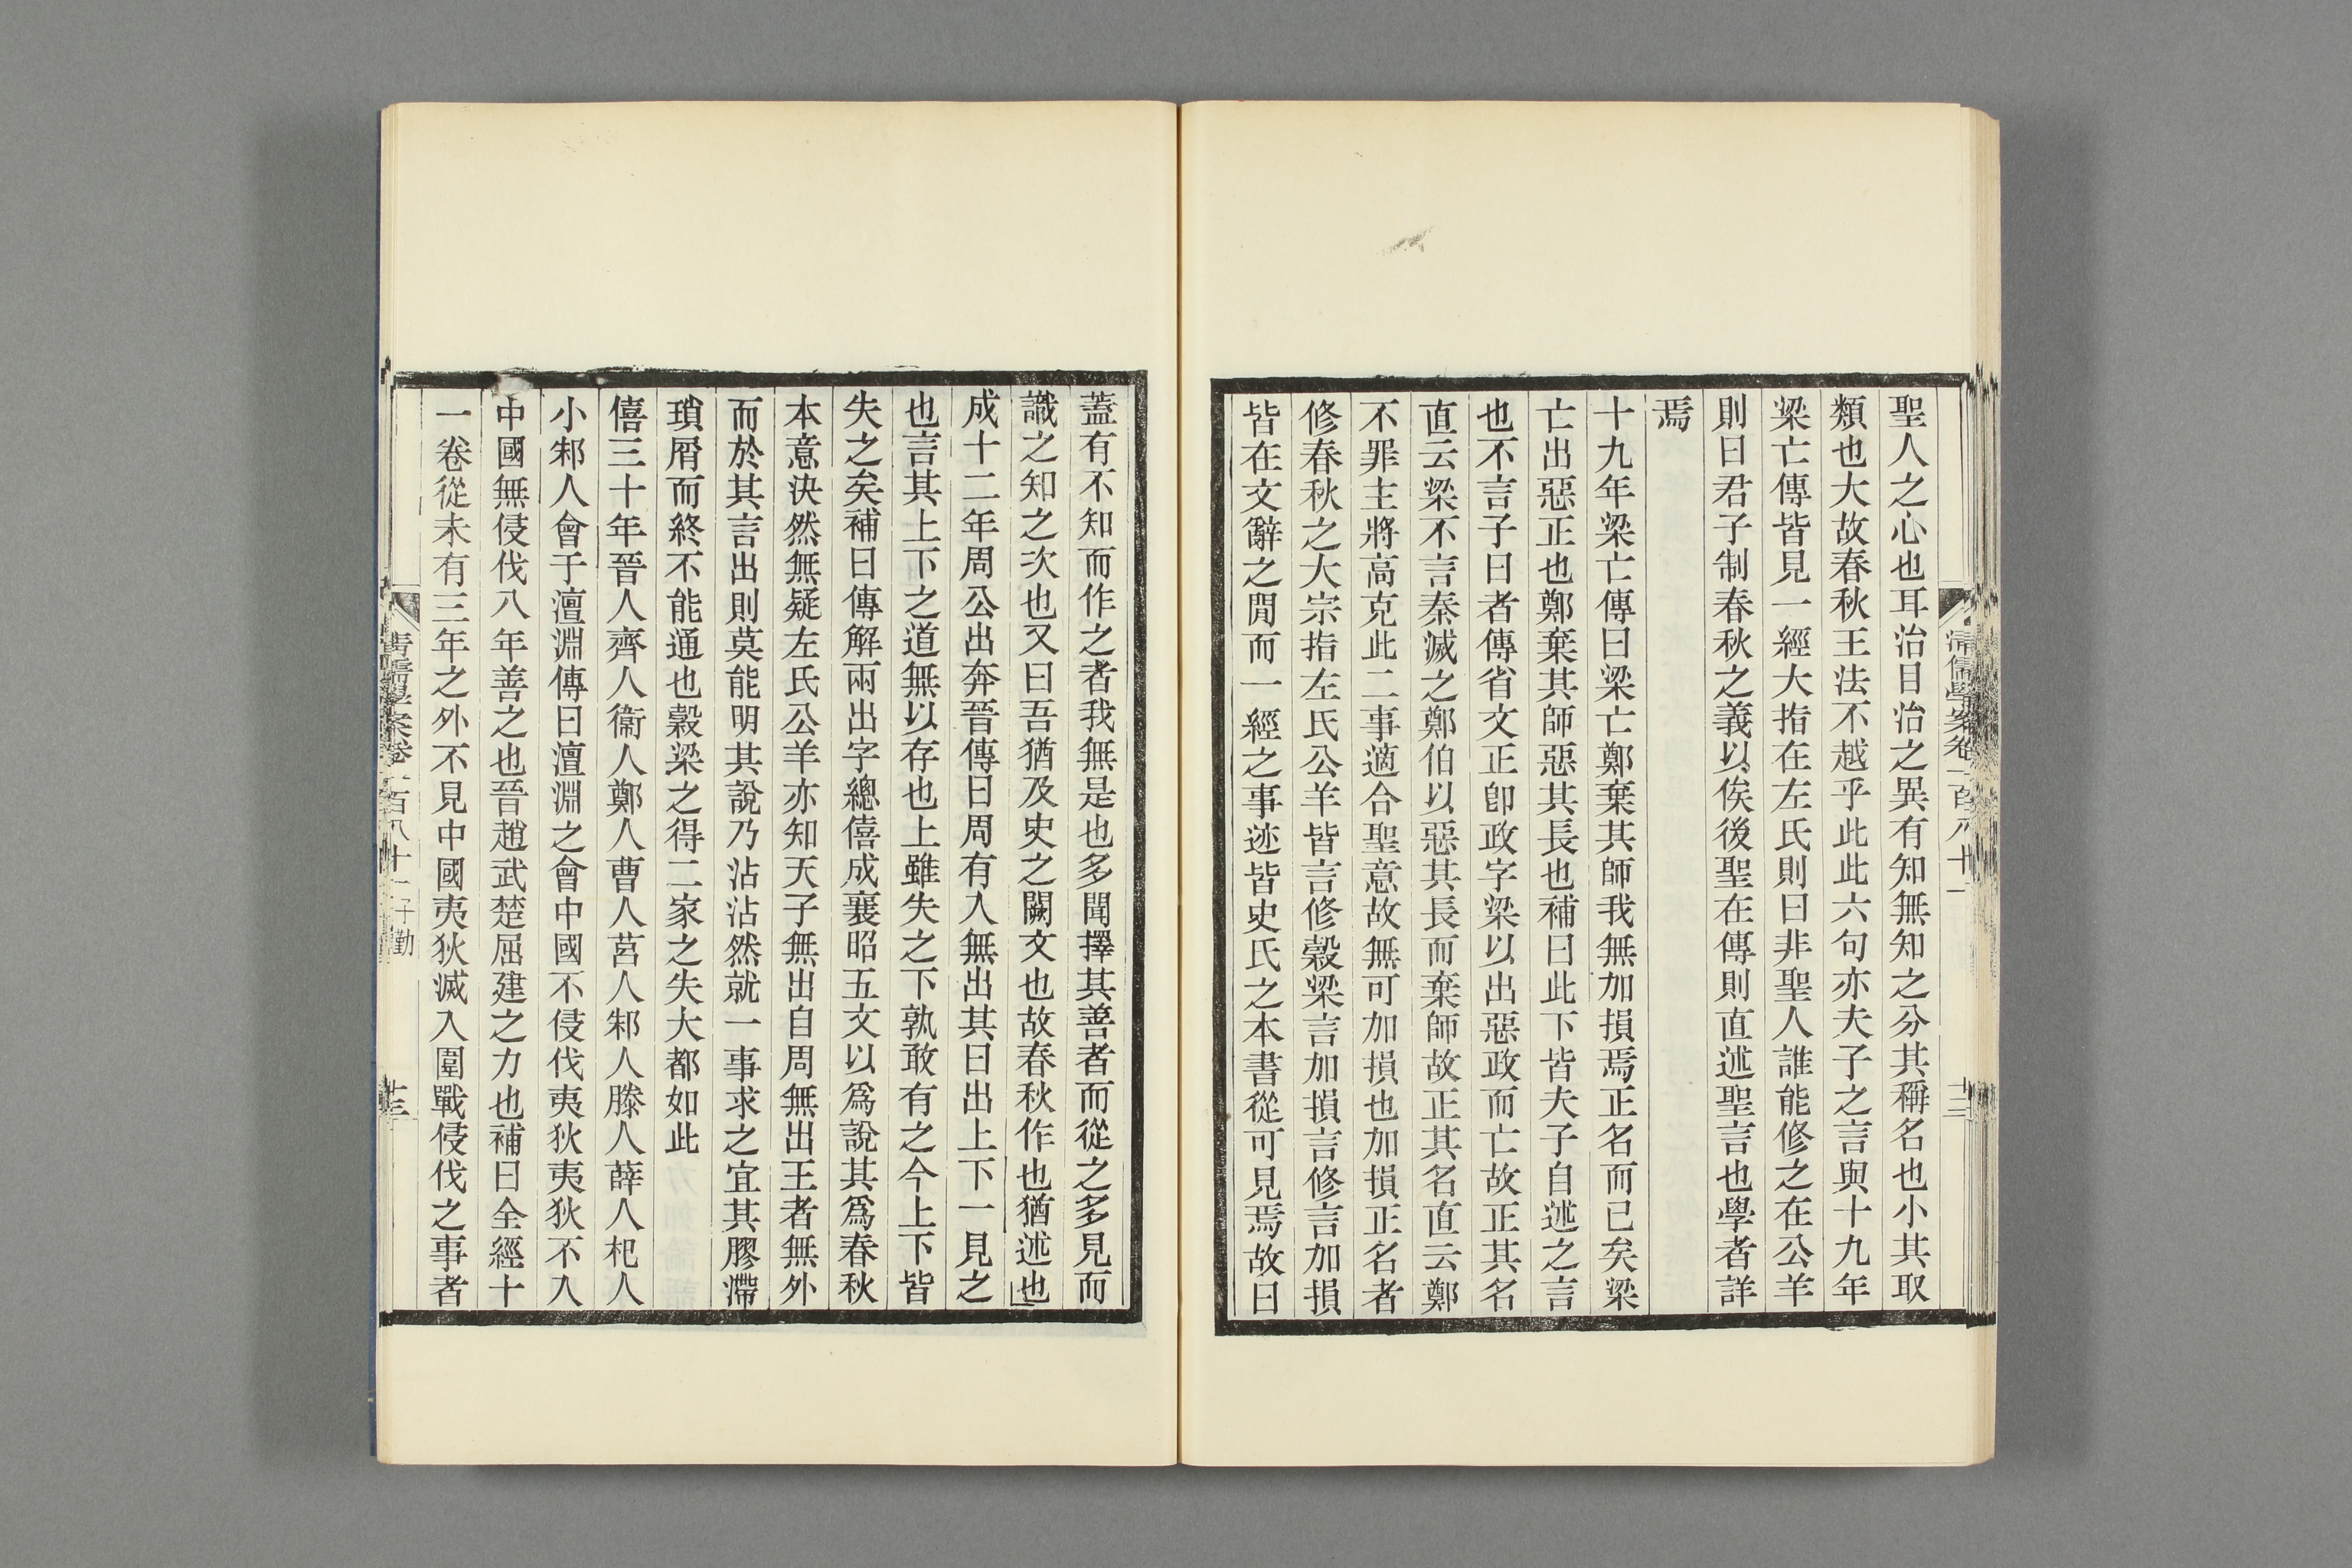 清儒學案卷一百八十一
十二
聖人之心也耳治目治之異有知無知之分其稱名也小其取
類也大故春秋王法不越乎此此六句亦夫子之言與十九年
梁亡傳皆見一經大指在左氏則曰非聖人誰能修之在公羊
則曰君子制春秋之義以俟後聖在傳則直述聖言也學者詳
焉
十九年梁亡傳曰梁亡鄭棄其師我無加損焉正名而已矣梁
亡出惡正也鄭棄其師惡其長也補曰此下皆夫子自述之言
也不言子曰者傳省文正卽政字梁以出惡政而亡故正其名
直云梁不言秦滅之鄭伯以惡其長而棄師故正其名直云鄭
不罪主將高克此二事適合聖意故無可加損也加損正名者
修春秋之大宗指左氏公羊皆言修穀梁言加損言修言加損
皆在文辭之閒而一經之事迹皆史氏之本書從可見焉故曰
蓋有不知而作之者我無是也多聞擇其善者而從之多見而
識之知之次也又曰吾猶及史之闕文也故春秋作也猶述也
成十二年周公出奔晉傳曰周有入無出其曰出上下一見之
也言其上下之道無以存也上雖失之下孰敢有之今上下皆
失之矣補曰傳解兩出字總僖成襄昭五文以爲說其爲春秋
本意決然無疑左氏公羊亦知天子無出自周無出王者無外
而於其言出則莫能明其說乃沾沾然就一事求之宜其膠滯
瑣屑而終不能通也穀梁之得二家之失大都如此
僖三十年晉人齊人衞人鄭人曹人莒人邾人滕人薛人杞人
小邾人會于澶淵傳曰澶淵之會中國不侵伐夷狄夷狄不入
中國無侵伐八年善之也晉趙武楚屈建之力也補曰全經十
一卷從未有三年之外不見中國夷狄滅入圍戰侵伐之事者
清儒學案卷一百八十一
十三